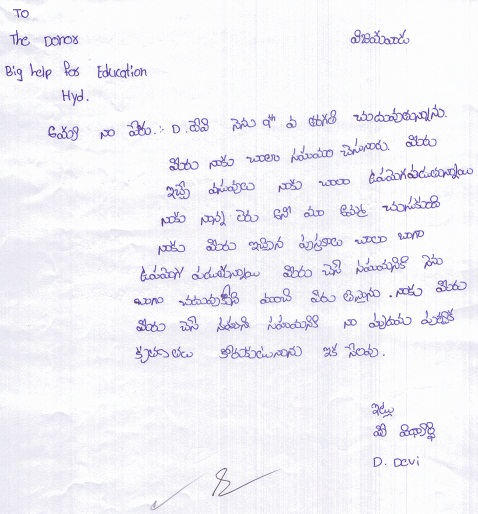 TO
The Donor
విజయవాడ
Big help for Education
Hyd.
నా పేరు :- D. దేవి నేను 9th వ తరగతి చదువుతున్నాను.
మీరు నాకు చాలా సహాయం చేసినారు. మీరు
ఇచ్చే వస్తువులు నాకు చాలా ఉపయోగపడుతున్నాయి
నాకు నాన్న లేరు మా అమ్మ
నాకు మీరు ఇచ్చిన పుస్తకాలు చాలా బాగా
ఉపయోగ పడుతున్నాయి మీరు చేసే సహాయానికి నేను
బాగా చదువుకుని మంచి పేరు తెస్తాను. నాకు మీరు
మీరు చేసే సహాయానికి నా హృదయ పూర్వక
కృతజ్ఞతలు ఇక సెలవు.
ఇట్లు
మీ విద్యార్థి
D. Devi